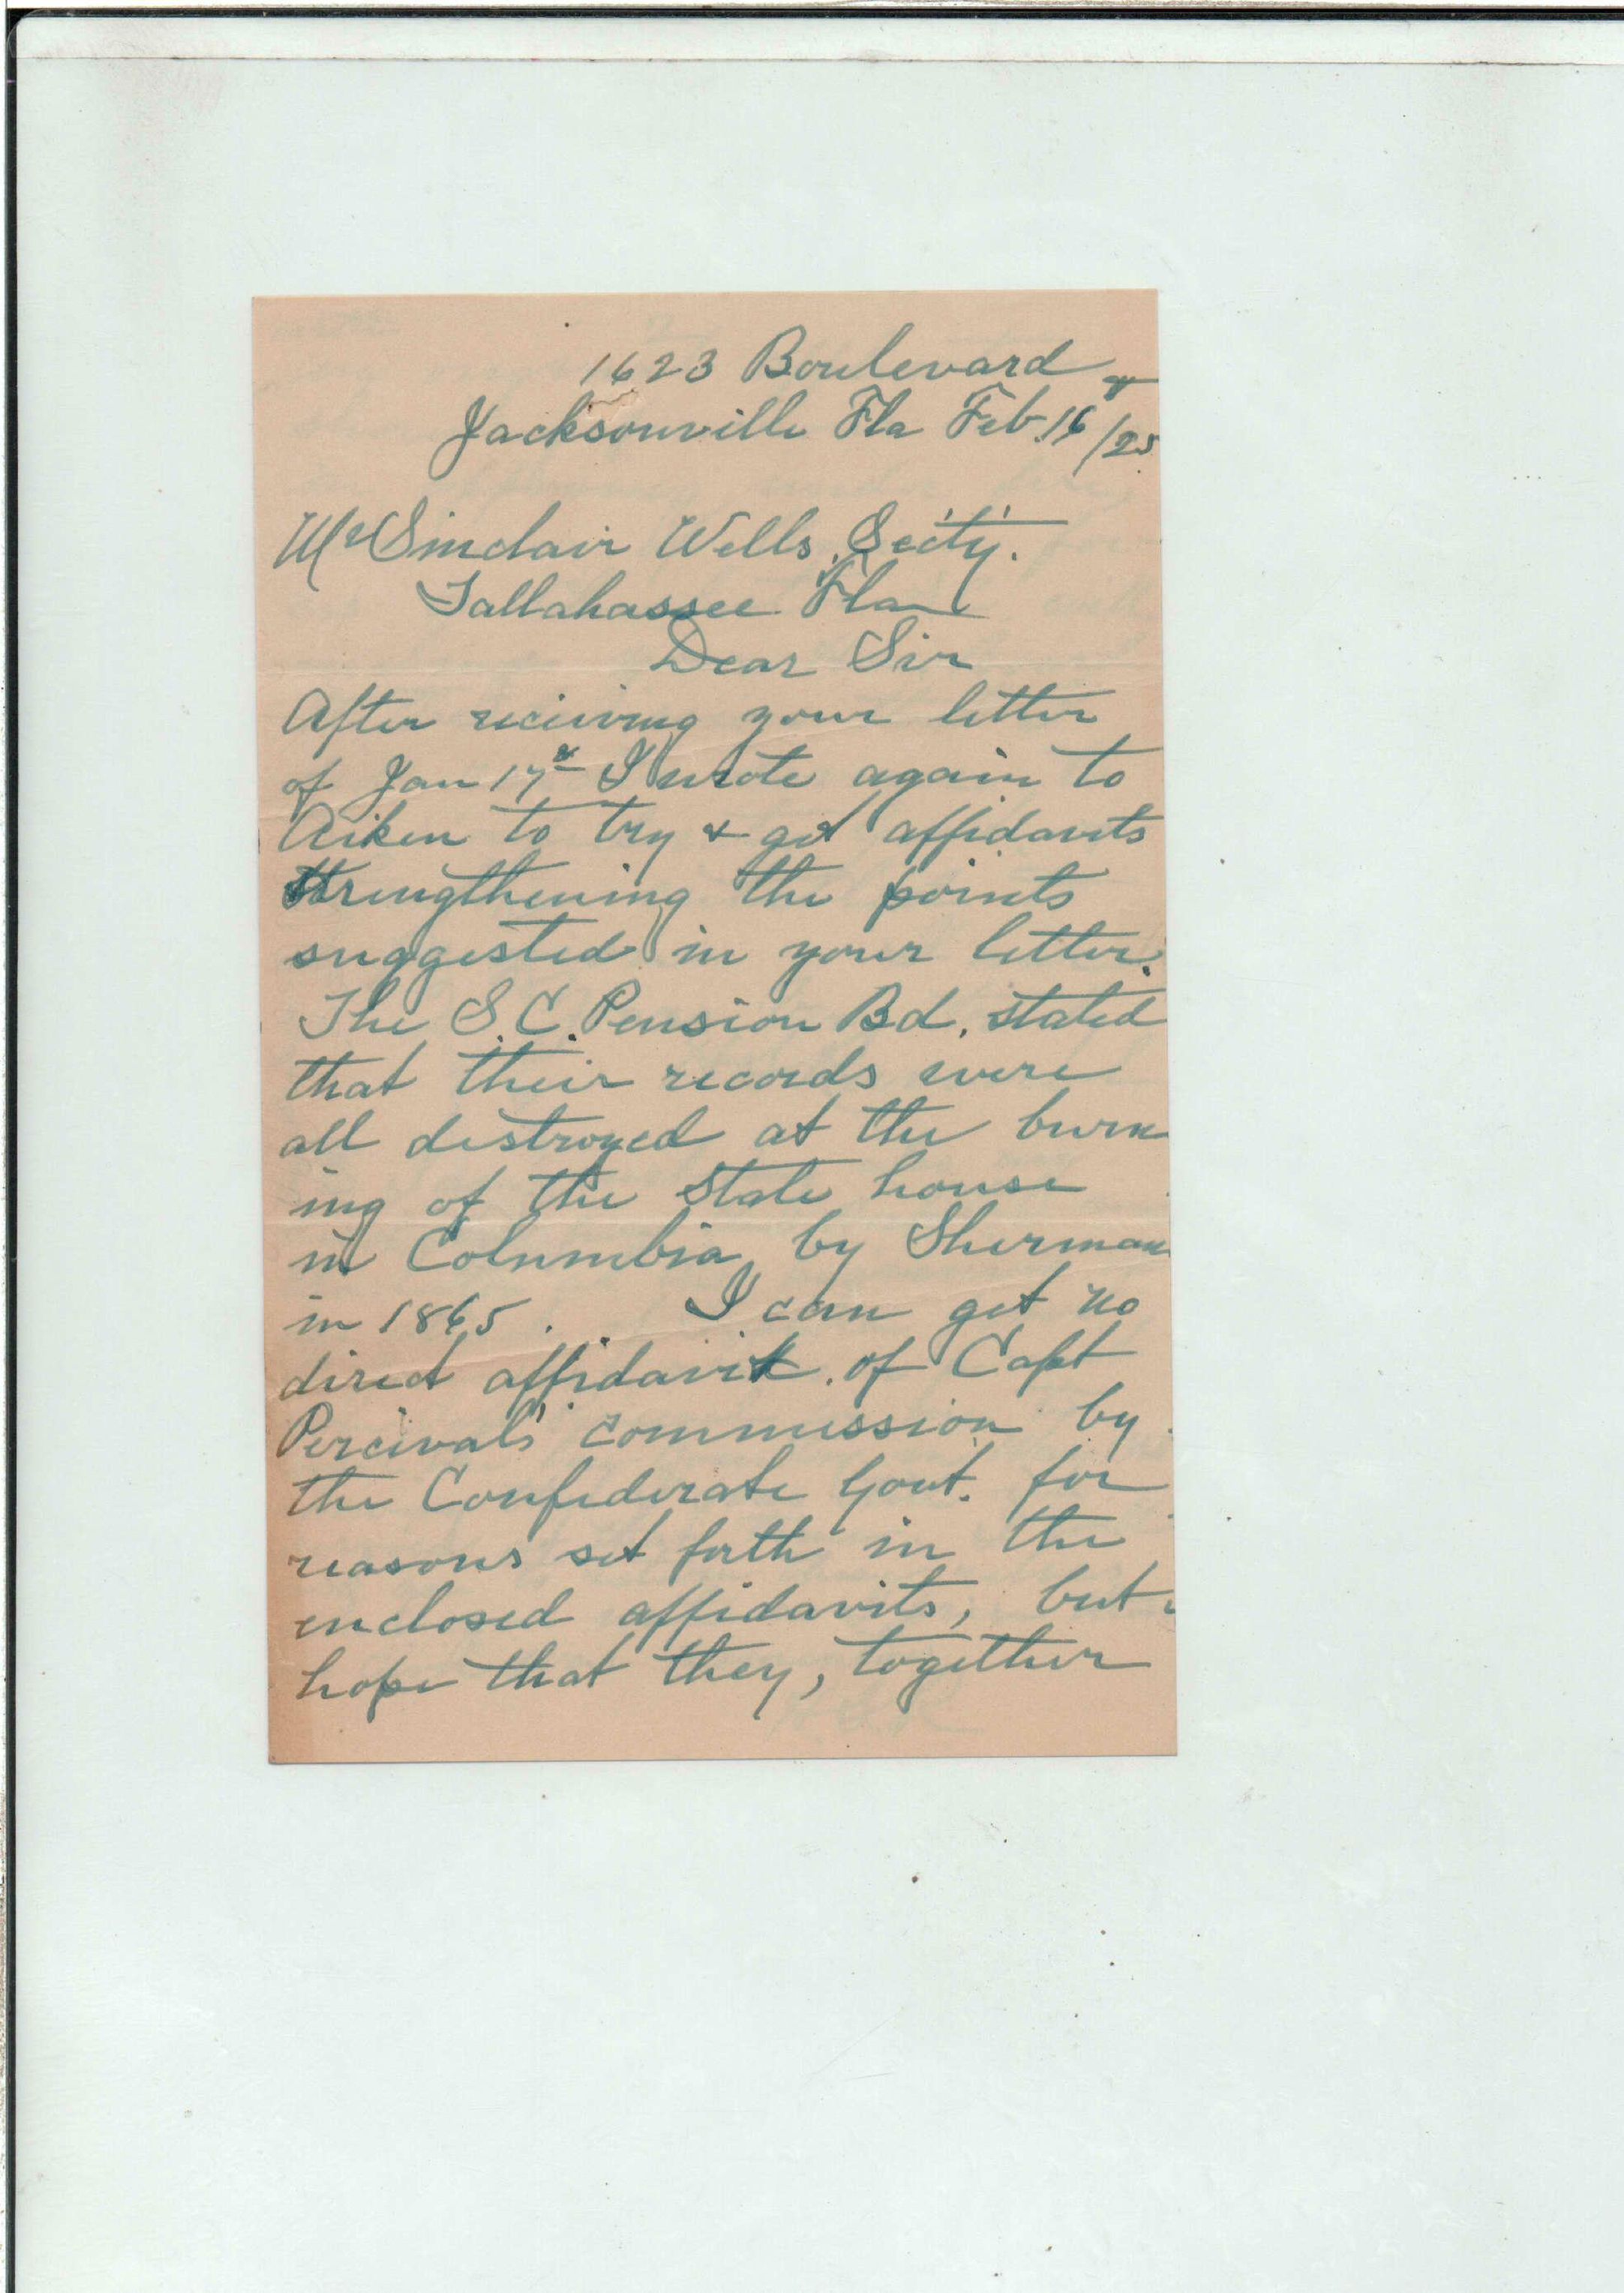 1623 Boulevard
Jacksonville Fla Feb. 16/25
Mr Sinclair Wells, Sec'ty.
Tallahassee Fla
Dear Sir
After reciving your letter
of Jan 17th I wrote again to
Aiken to try & get affidavits
strengthening the points
suggested in your letter.
The S. C. Pension Bd. stated
that their records were
all destroyed at the burn
ing of the State house
in Columbia by Sherman
in 1865. I can get no
direct affidavit of Capt
Percival's commission by
the Confederate Govt. for
reasons set forth in the
enclosed affidavits, but
hope that they, together